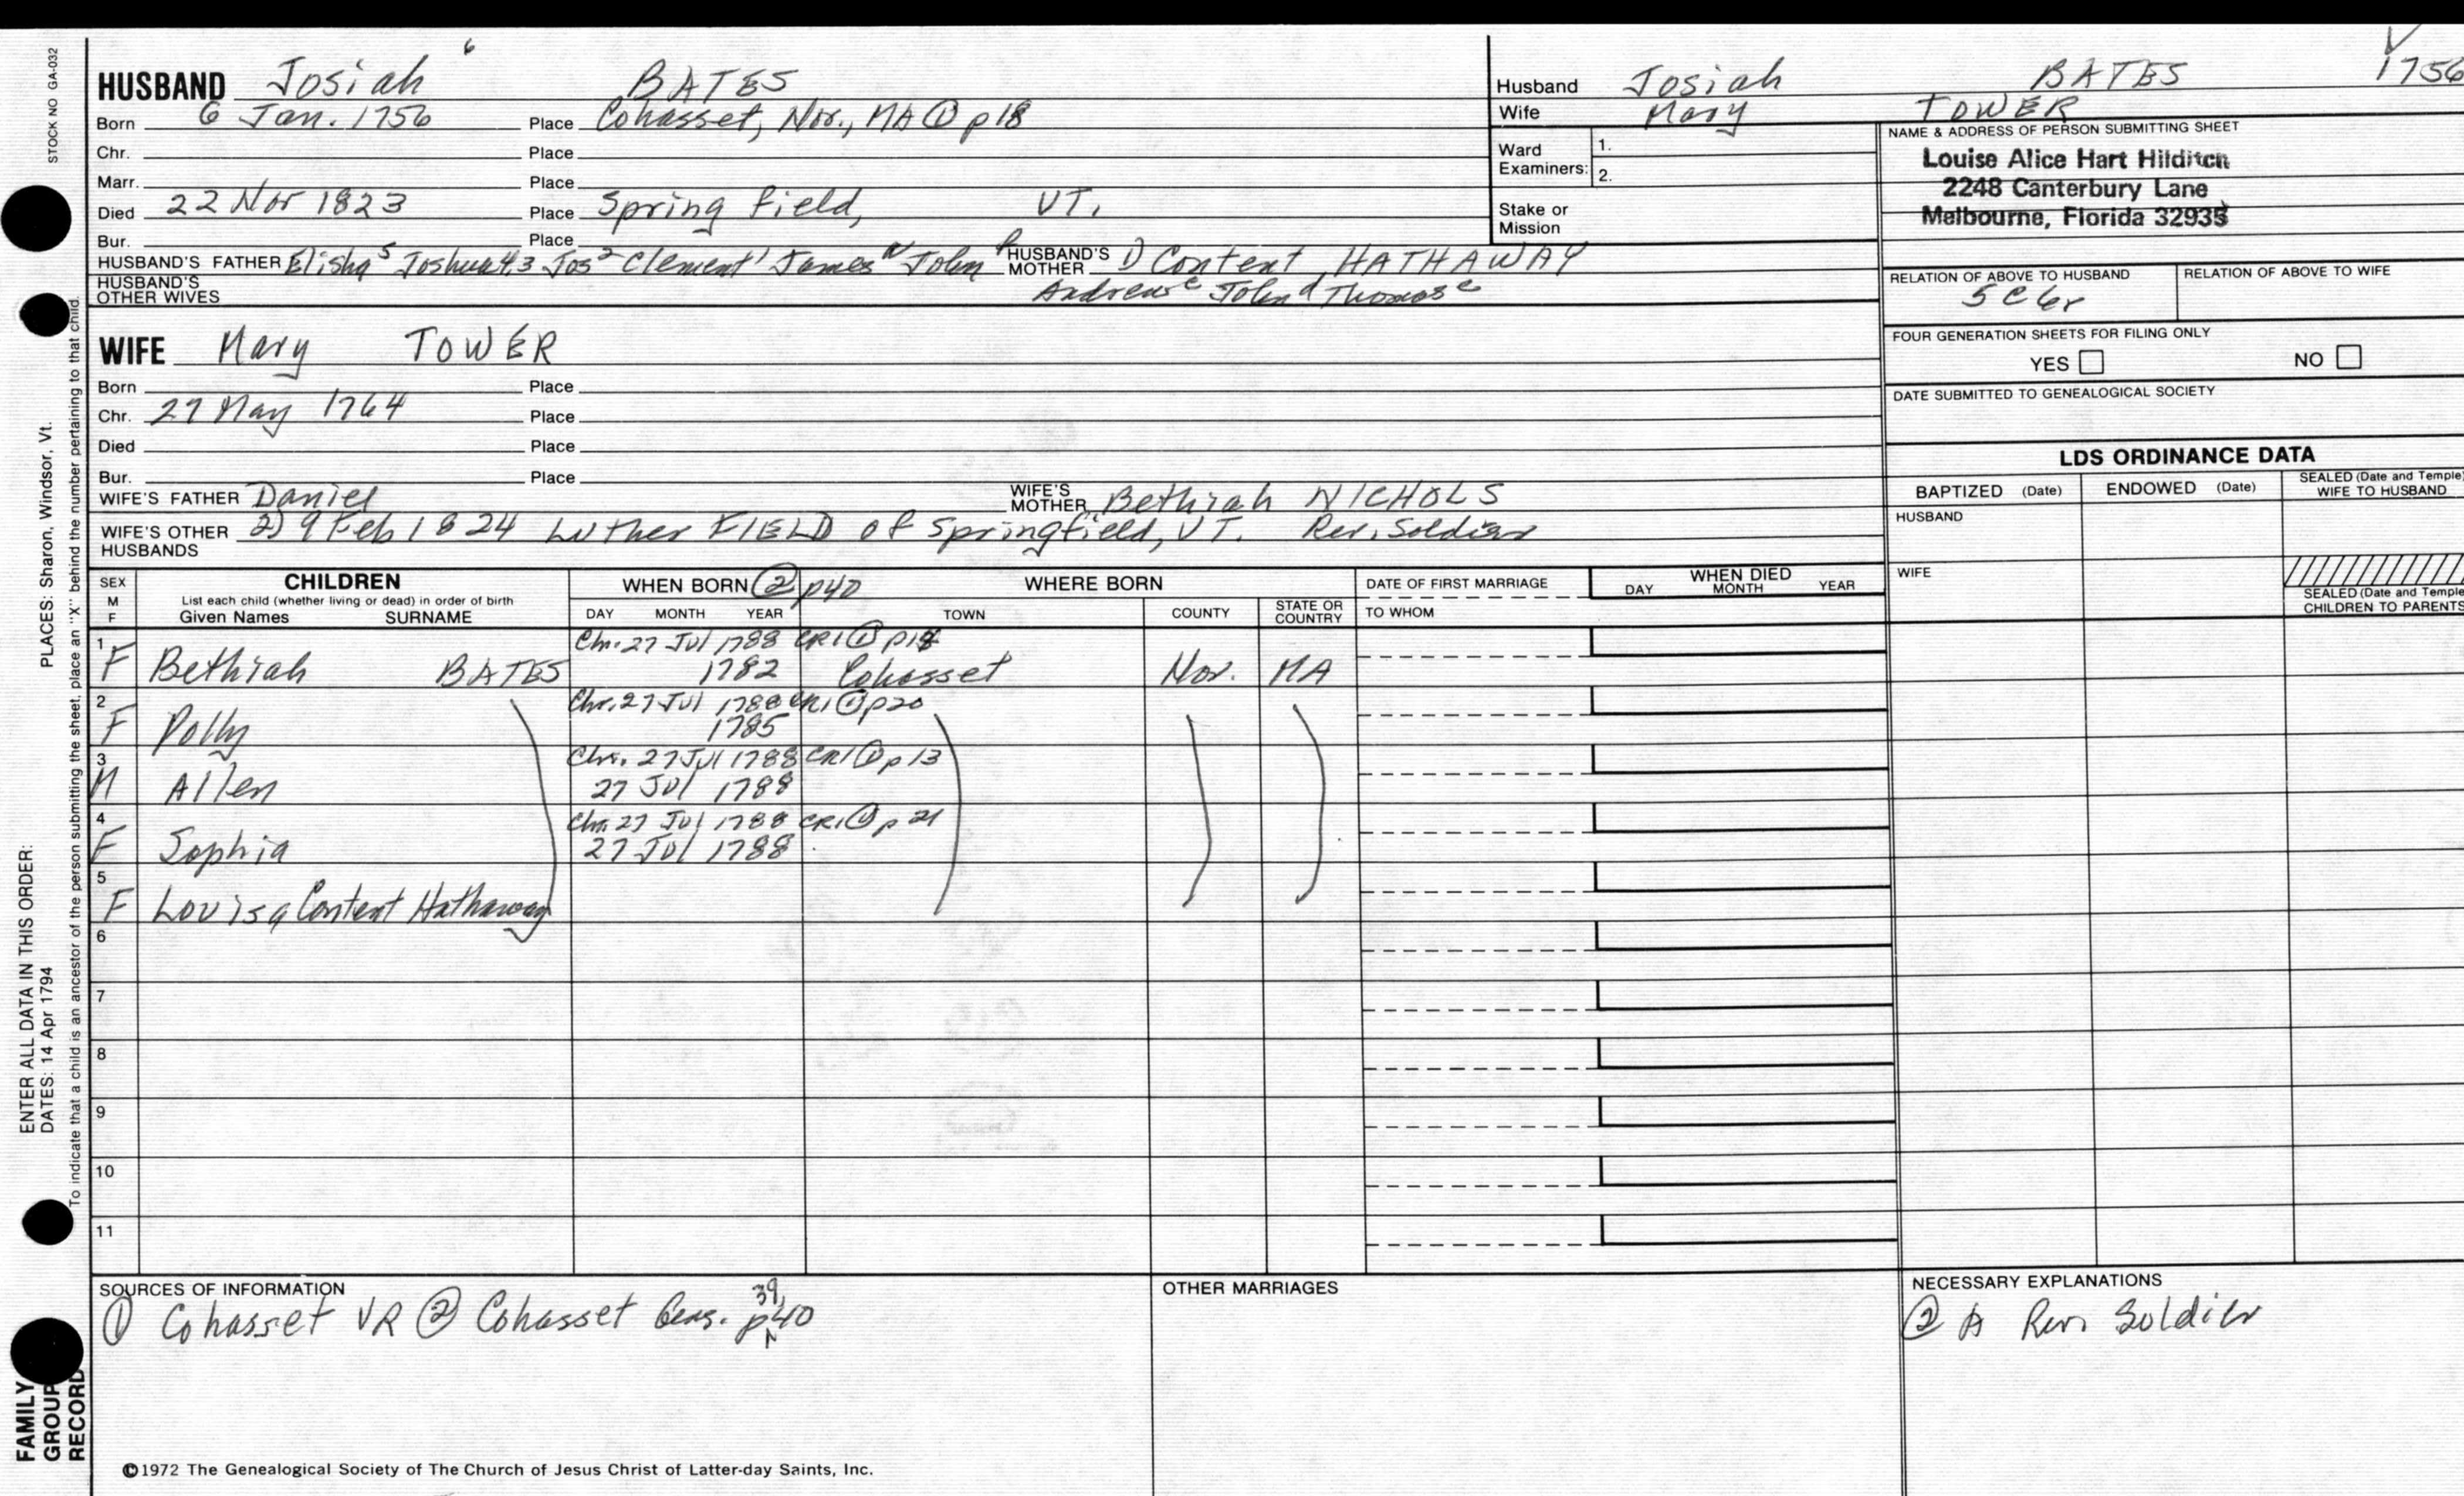 STOCK NO GA-032
HUSBAND Josiah 6 BATES
Born 6 Jan. 1756 Place Cohasset, Nor., MA ① p18
Chr. Place
Marr. Place
Died 22 Nov 1823 Place Spring field, VT.
Bur. Place
HUSBAND'S FATHER Elisha 5 Joshua 4,3 Jos 2 Clement 1 James John HUSBAND'S MOTHER 1) Content HATHAWAY
HUSBAND'S OTHER WIVES Andrew c John d Thomas e
Husband Josiah BATES 1756
Wife Mary TOWER
Ward Examiners: 1.
2.
Stake or Mission
NAME & ADDRESS OF PERSON SUBMITTING SHEET
Louise Alice Hart Hilditch
2248 Canterbury Lane
Melbourne, Florida 32935
RELATION OF ABOVE TO HUSBAND RELATION OF ABOVE TO WIFE
5 C 6r
FOUR GENERATION SHEETS FOR FILING ONLY
YES NO
DATE SUBMITTED TO GENEALOGICAL SOCIETY
WIFE Mary TOWER
Born Place
Chr. 27 May 1764 Place
Died Place
Bur. Place
WIFE'S FATHER Daniel WIFE'S MOTHER Bethiah NICHOLS
WIFE'S OTHER HUSBANDS 2) 9 Feb 1824 Luther FIELD of Springfield, VT. Rev. Soldier
LDS ORDINANCE DATA
BAPTIZED (Date) ENDOWED (Date) SEALED (Date and Temple) WIFE TO HUSBAND
HUSBAND
WIFE
SEALED (Date and Temple) CHILDREN TO PARENTS
SEX M F
CHILDREN
List each child (whether living or dead) in order of birth
Given Names SURNAME
WHEN BORN ② p40 WHERE BORN
DAY MONTH YEAR TOWN COUNTY STATE OR COUNTRY
DATE OF FIRST MARRIAGE
TO WHOM
WHEN DIED
DAY MONTH YEAR
1 Chr. 27 Jul 1788 CR1 ① p14
F Bethiah BATES 1782 Cohasset Nor. MA
2 Chr. 27 Jul 1788 CR1 ① p20
F Polly 1785
3 Chr. 27 Jul 1788 CR1 ① p13
M Allen 27 Jul 1788
4 Chr. 27 Jul 1788 CR1 ① p 21
F Sophia 27 Jul 1788
5
F Louisa Content Hathaway
6
7
8
9
10
11
SOURCES OF INFORMATION
① Cohasset VR ② Cohasset Gens. p 39, 40
OTHER MARRIAGES
NECESSARY EXPLANATIONS
② A Rev. Soldier
©1972 The Genealogical Society of The Church of Jesus Christ of Latter-day Saints, Inc.
ENTER ALL DATA IN THIS ORDER:
DATES: 14 Apr 1794 PLACES: Sharon, Windsor, Vt.
To indicate that a child is an ancestor of the person submitting the sheet, place an "X" behind the number pertaining to that child.
FAMILY GROUP RECORD